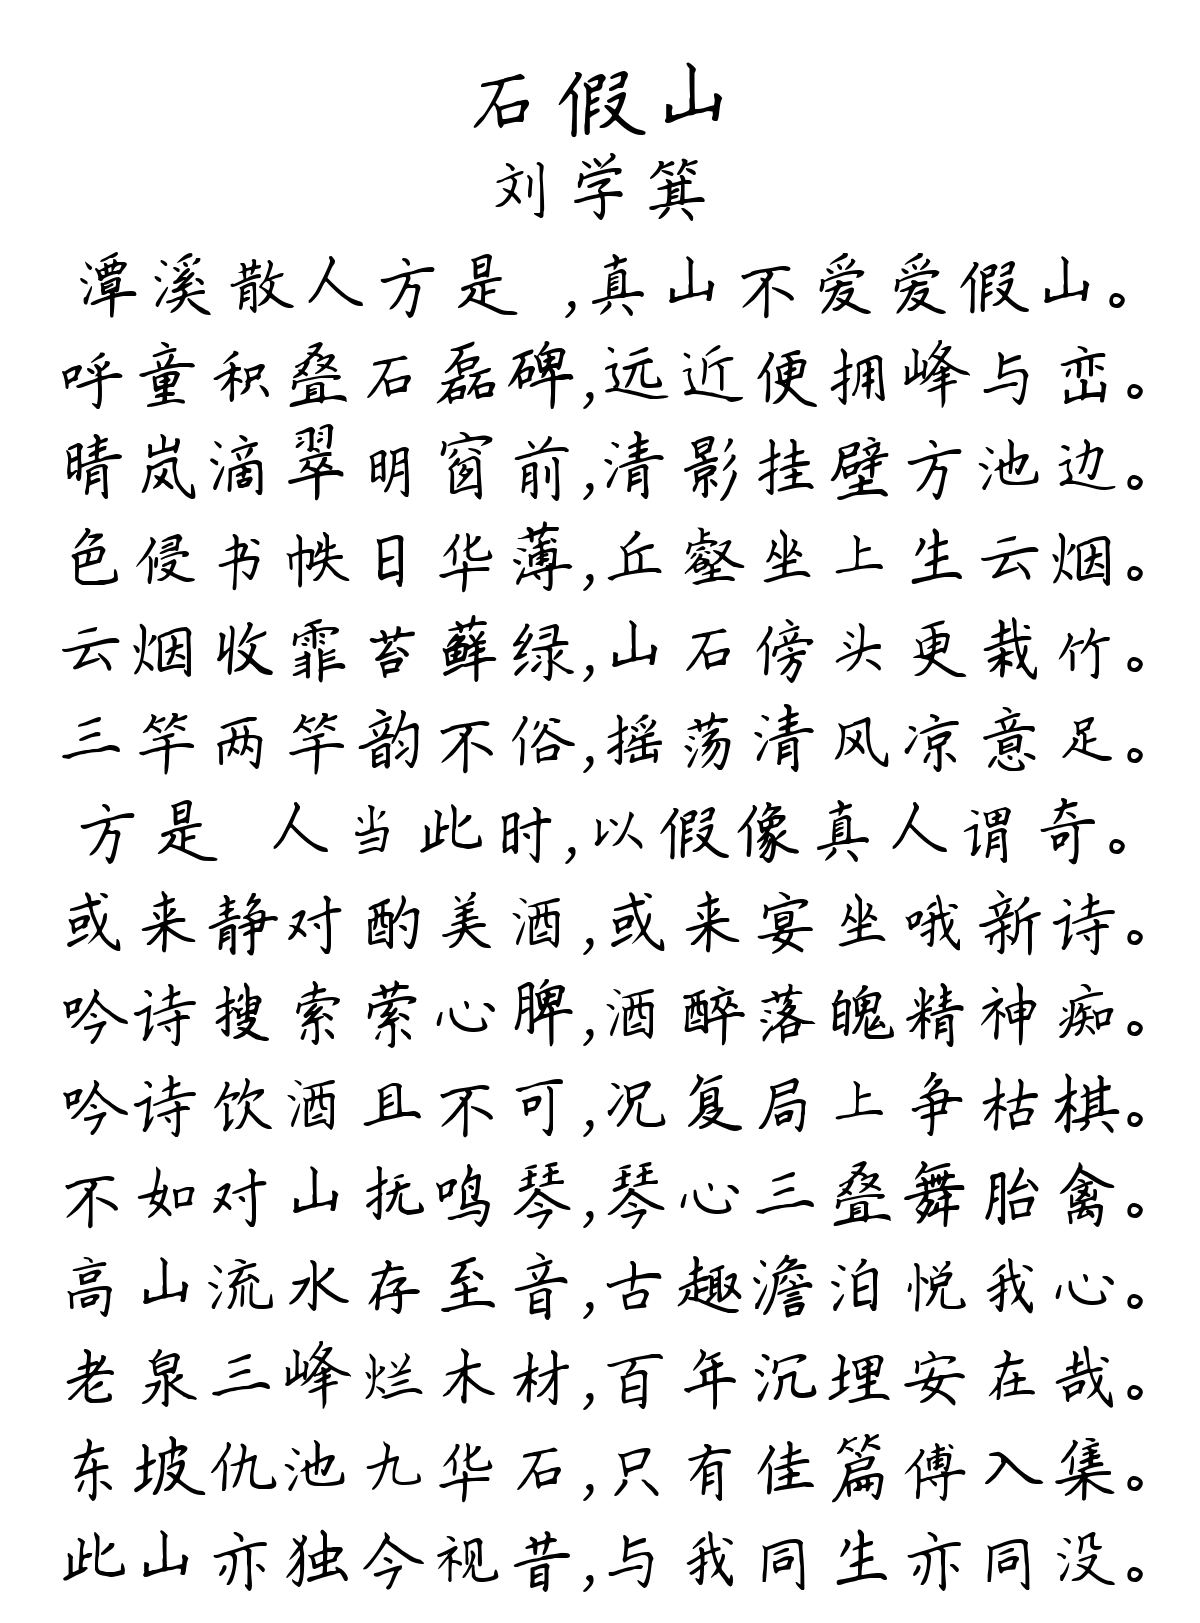 石假山
刘学箕
潭溪散人方是 ,真山不爱爱假山。
呼童积叠石磊碑,远近便拥峰与峦。
晴岚滴翠明窗前,清影挂壁方池边。
色侵书帙日华薄,丘壑坐上生云烟。
云烟收霏苔藓绿,山石傍头更栽竹。
三竿两竿韵不俗,摇荡清风凉意足。
方是 人当此时,以假像真人谓奇。
或来静对酌美酒,或来宴坐哦新诗。
吟诗搜索萦心脾,酒醉落魄精神痴。
吟诗饮酒且不可,况复局上争枯棋。
不如对山抚鸣琴,琴心三叠舞胎禽。
高山流水存至音,古趣澹泊悦我心。
老泉三峰烂木材,百年沉埋安在哉。
东坡仇池九华石,只有佳篇傅入集。
此山亦独今视昔,与我同生亦同没。